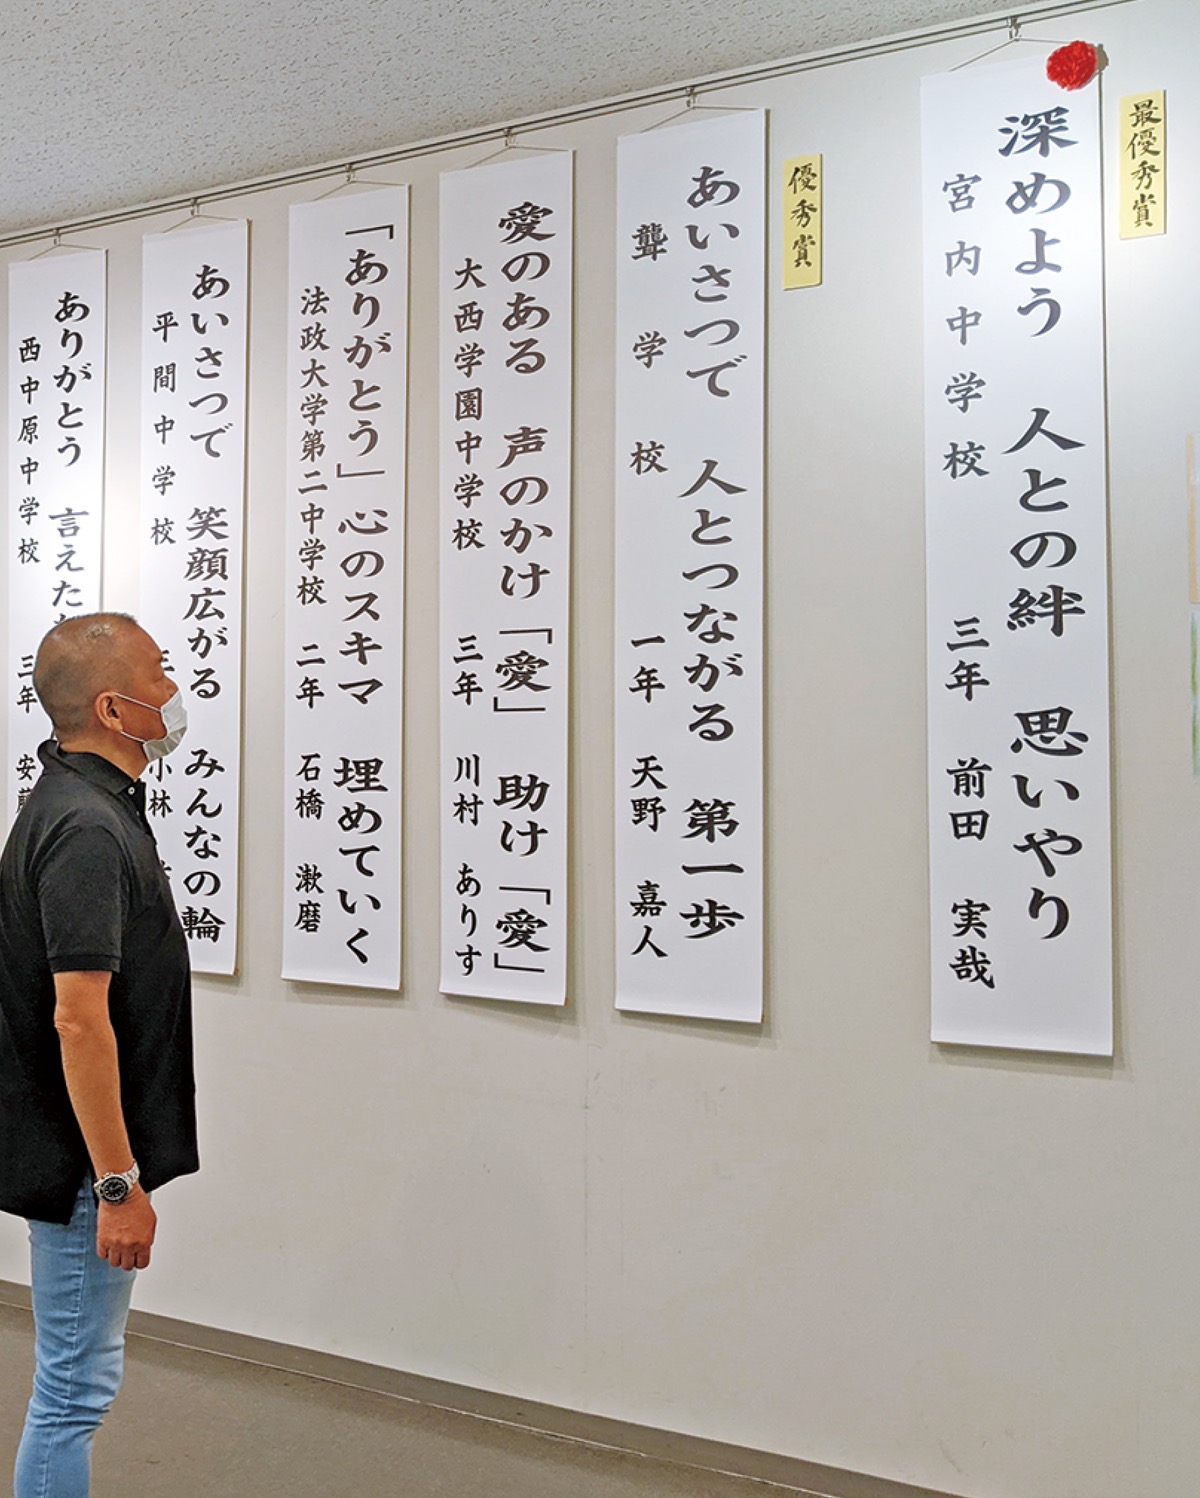 最優秀賞
深めよう 人との絆 思いやり
宮内中学校 三年 前田 実哉
優秀賞
あいさつで 人とつながる 第一歩
聾学校 一年 天野 嘉人
愛のある 声のかけ「愛」 助け「愛」
大西学園中学校 三年 川村 ありす
「ありがとう」心のスキマ 埋めていく
法政大学第二中学校 二年 石橋 漱磨
あいさつで 笑顔広がる みんなの輪
平間中学校 小林
ありがとう 言えた
西中原中学校 三年 安